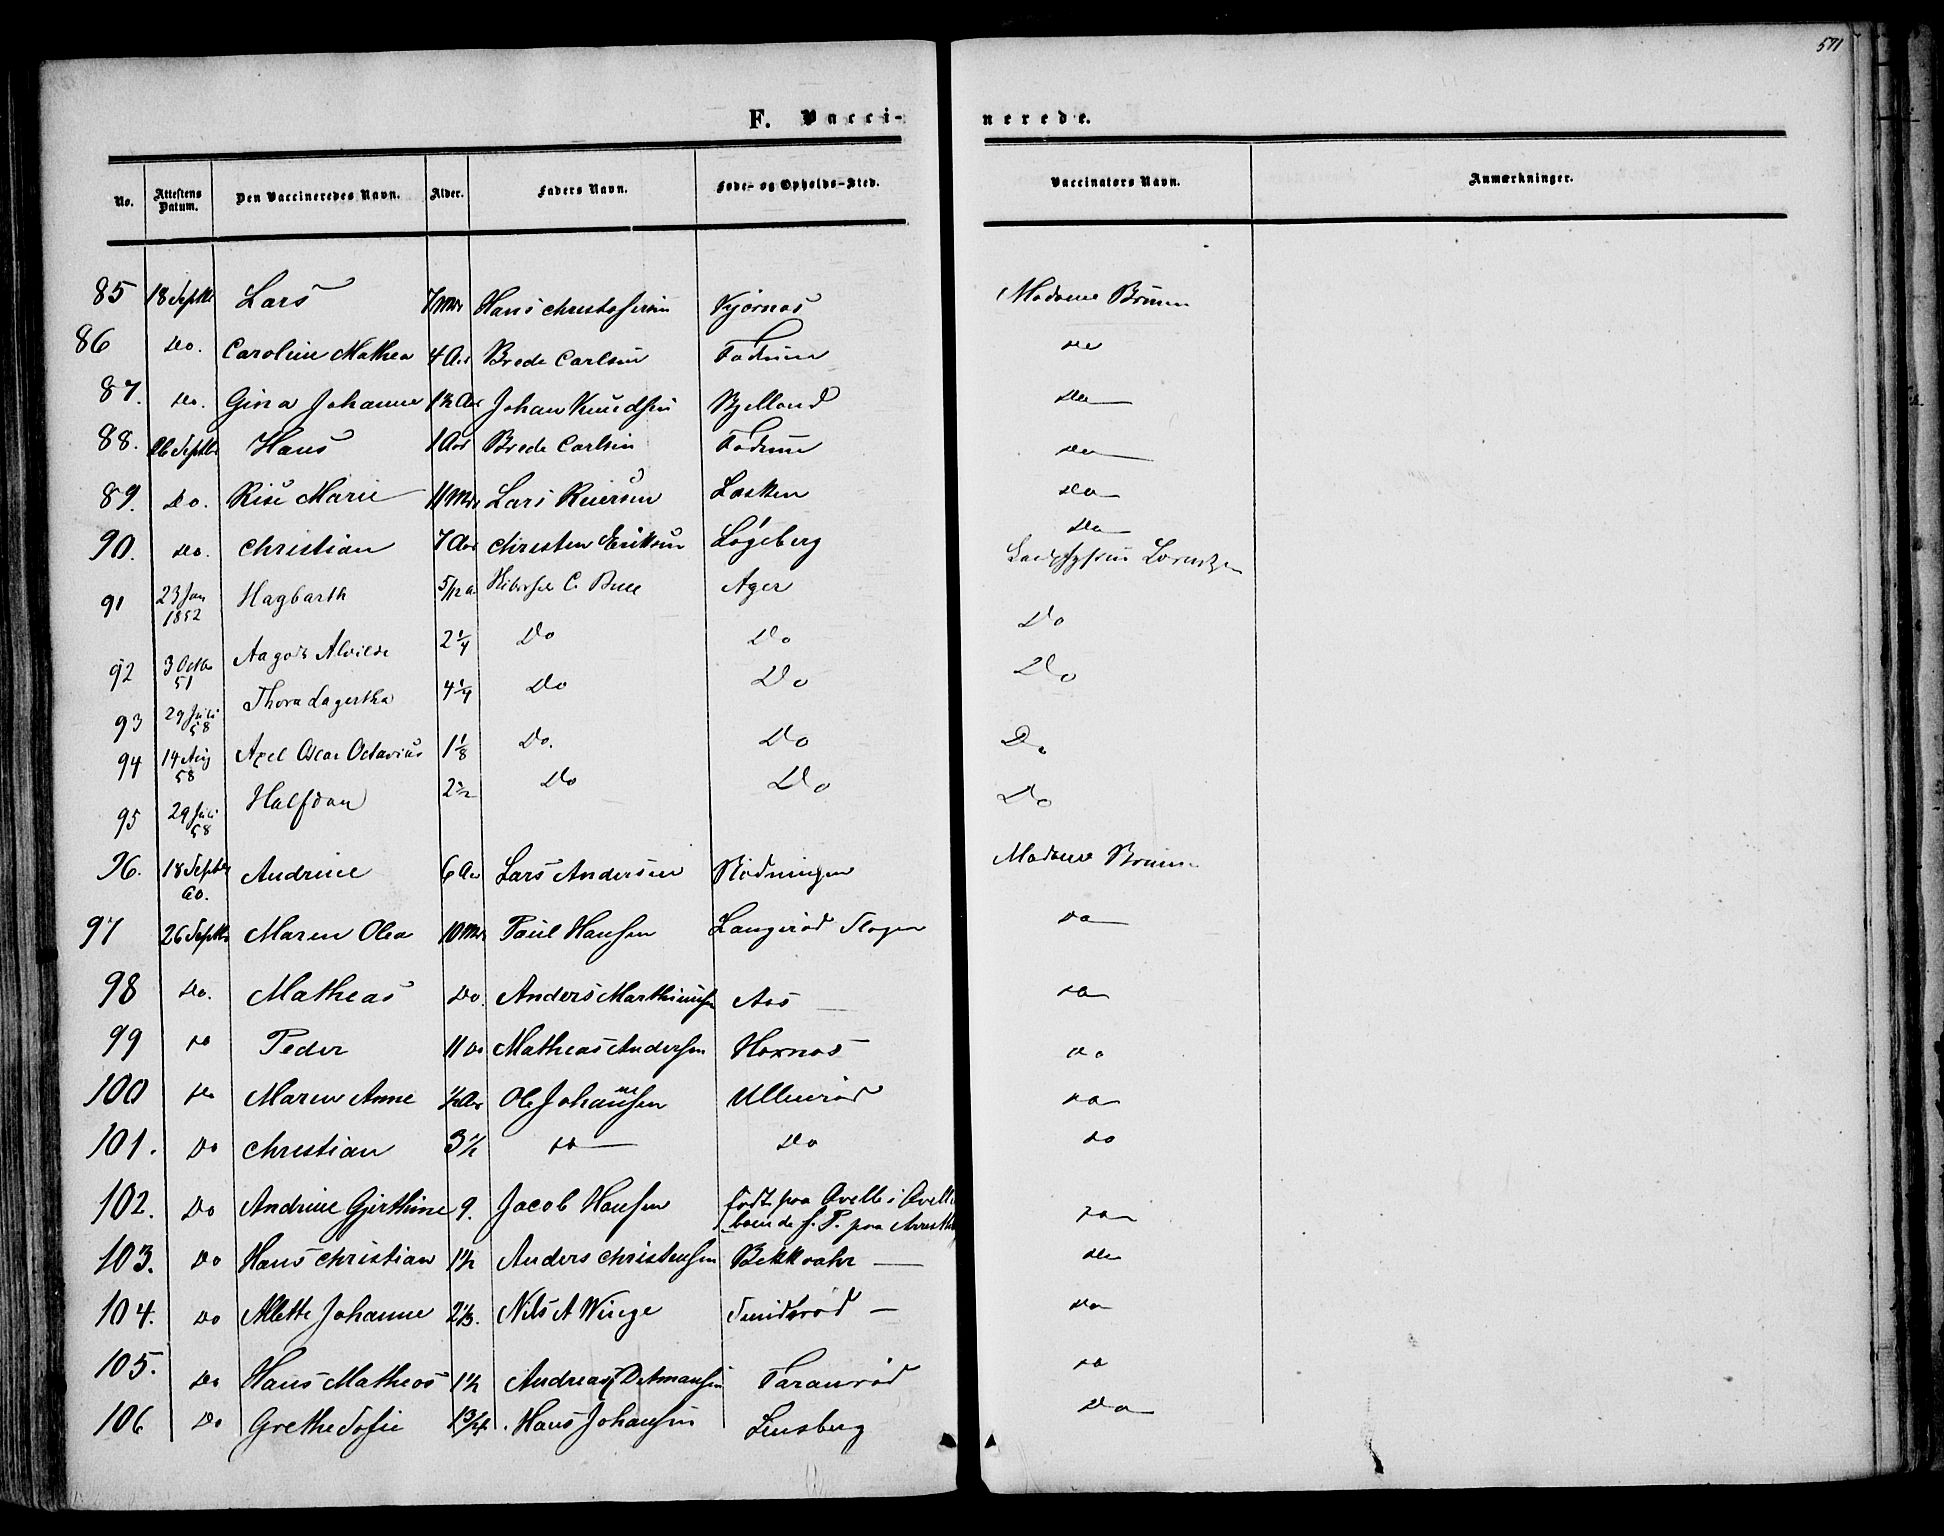 571
F. Vacci-nerede.
No. Attestens Datum. Den Vaccineredes Navn. Alder. Faders Navn. Føde- og Opholds-Sted. Vaccinators Navn. Anmærkninger.
85 18 Septbr Lars 7 Mdr Hans Christofersen Kjærnas Madame Bruun
86 Do. Caroline Mathea 4 Aar Brede Carlsen Fadum Do
87. Do. Gina Johanne 1½ Aar Johan Knudsen Bjelland Do
88. 26 Septbr Hans 1 Aar Brede Carlsen Fadum Do
89. Do. Rise Marie 11 Mdr Lars Reiersen Lasken Do
90. Do. Christian 7 Aar Christen Eriksen Løgeberg Do
91 23 Jan 1852 Hagbarth 5/12 a C. Bull Ager Lorentzen
92 3 Octbr 51 Aagoth Alvilde 2 1/4 Do Do Do
93 29 Juli 58 Thora Lagertha 4 1/4 Do Do Do
94 14 Aug 58 Axel Oscar Octavius 1 1/8 Do. Do Do
95 29 Juli 58 Halfdan 2 1/2 Do Do Do
96. 18 Septbr 60. Andrine 6 Aar Lars Andersen Rødningen Madame Bruun
97 26 Septbr Maren Olea 10 Mdr Paul Hansen Langerød Slagen Do
98 Do. Matheas Do. Anders Marthinusen Aas Do
99 Do Peder 11 Do Matheas Andersen Hornas Do
100 Do Maren Anne ½ Aar Ole Johannesen Ullenrød Do
101. Do Christian 3 1/2 Do Do Do
102. Do Andrine Gjerthine 9. Jacob Hansen født paa Qvelle i boende paa Do
103. Do Hans Christian 1½ Anders Christensen Bekkvahr Do
104. Do Alette Johanne 2 1/3. Nils A Winge Sundsrød Do
105. Do Hans Matheas 1½ Andreas Ditmansen Faranrød Do
106 Do Grethe Sofie 1 3/4. Hans Johansen Linsberg Do